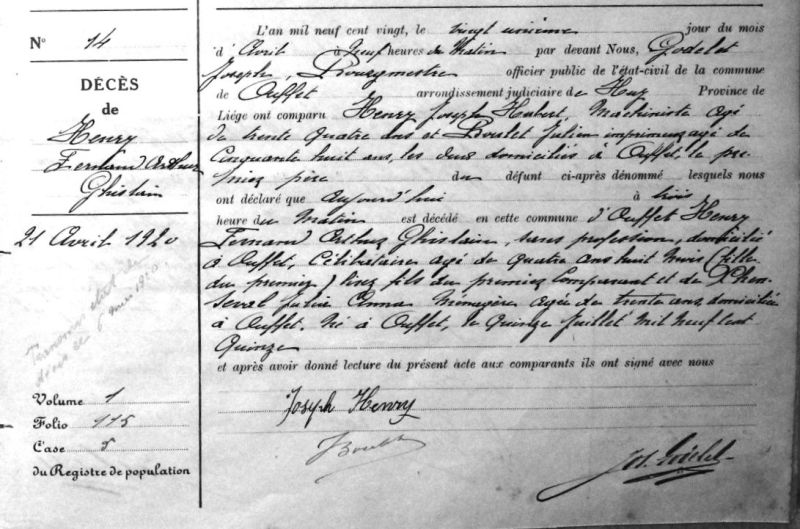 N° 14
DÉCÈS
de
Henry
Fernand Arthur
Ghislain
21 Avril 1920
Volume 1
Folio 115
Case 5
du Registre de population
L'an mil neuf cent vingt, le vingt unième jour du mois
d'Avril à Neuf heures du Matin par devant Nous, Godelet
Joseph, Bourgmestre officier public de l'état-civil de la commune
de Ouffet arrondissement judiciaire de Huy Province de
Liége ont comparu Henry Joseph Hubert, Machiniste agé
de trente quatre ans et Boulet Julien imprimeur agé de
Cinquante huit ans, les deux domiciliés à Ouffet, le pre
mier père du défunt ci-après dénommé lesquels nous
ont déclaré que aujourd'hui à trois
heure du Matin est décédé en cette commune d'Ouffet Henry
Fernand Arthur Ghislain, sans profession, domicilié
à Ouffet, Célibataire agé de quatre ans huit mois (fille
du premier) lisez fils du premier Comparant et de
Julia Anna Ménagère agée de trente ans, domiciliée
à Ouffet. Né à Ouffet, le Quinze Juillet Mil Neuf Cent
Quinze
et après avoir donné lecture du présent acte aux comparants ils ont signé avec nous
Joseph Henry
J Boulet
Jos. Godelet